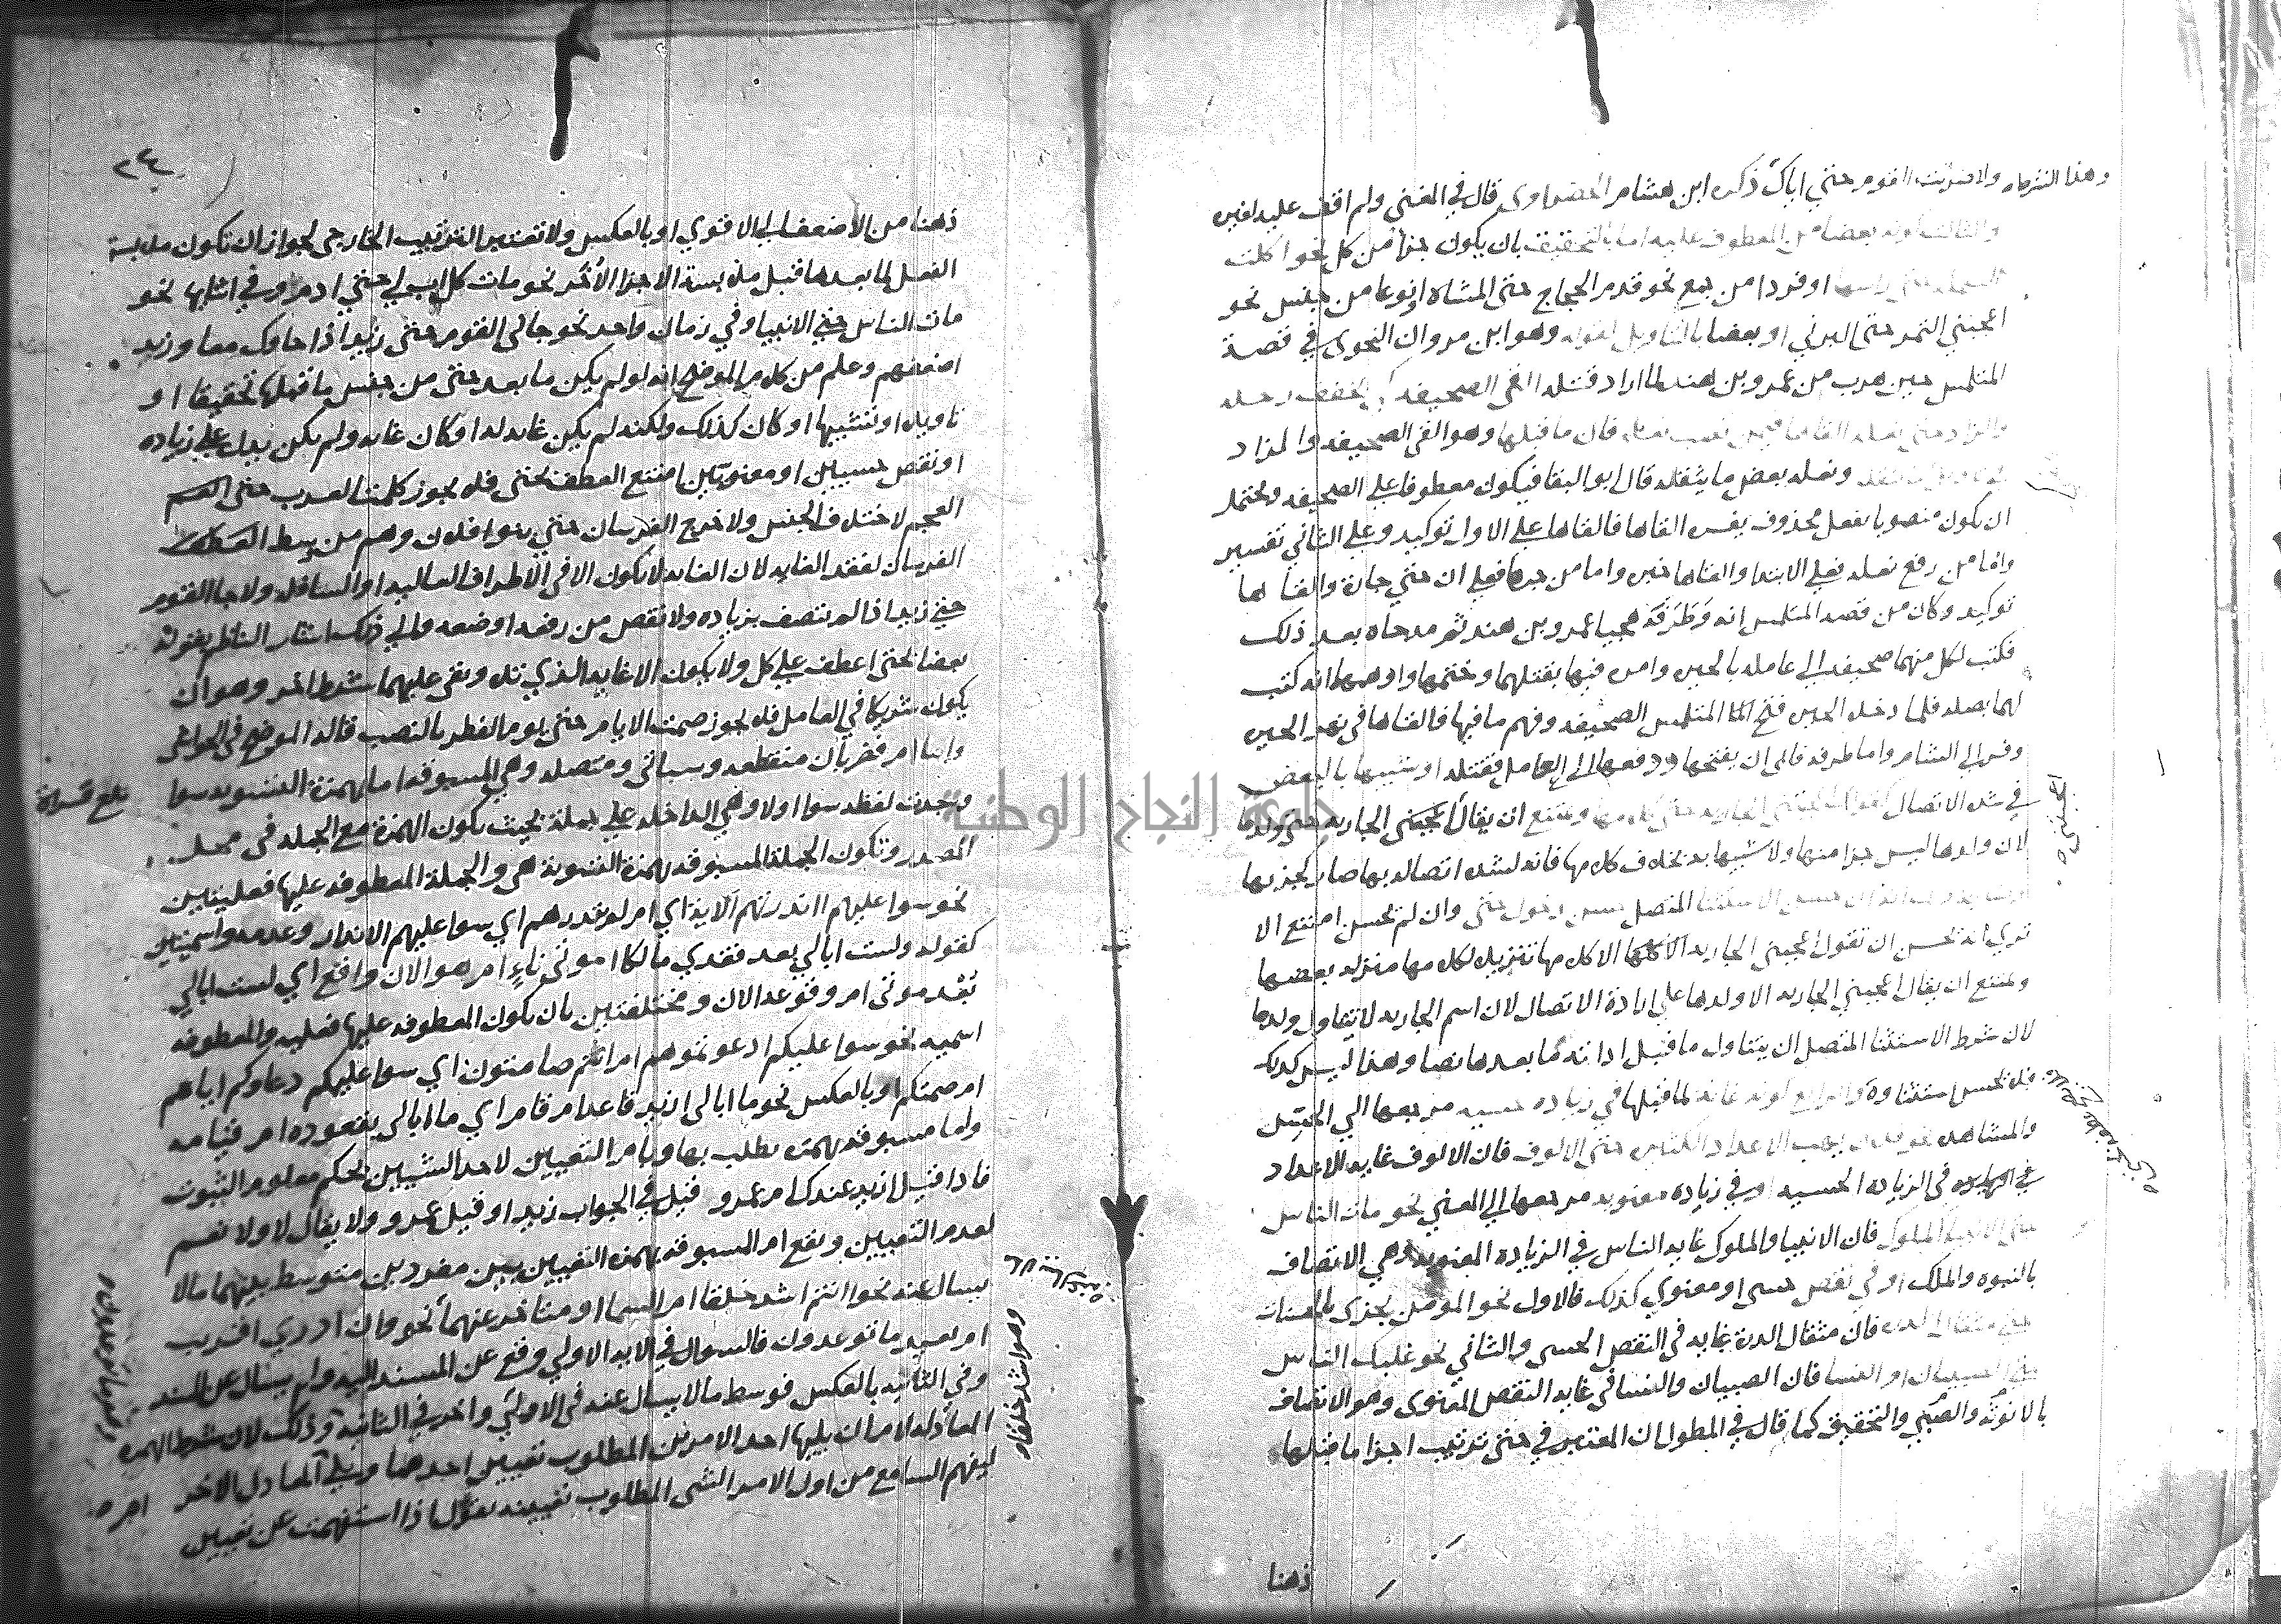 وهذا الشرط ولا ضربت القوم حتي اياك ذكره ابن هشام الخضراوي قال في المغني ولم اقف عليه لغيره
والثالث كونه بعضا من المعطوف عليه اما بالتحقيق بان يكون جزأ من كل نحو اكلت
السمكة حتى راسها او فردا من جمع نحو قدم الحجاج حتى المشاه او نوعا من جنس نحو
اعجبني التمر حتى البرني او بعضا بالتاويل لقوله وهو ابن مروان النحوي في قصة
المتلمس حين هرب من عمرو بن هند لما اراد قتله القى الصحيفه كي يخفف رحله
والزاد حتى نعله القاها فيمن نصب نعله فان ما قبلها وهو القى الصحيفه والزاد
ونعله بعض ما يثقله قال ابو البقا فيكون معطوفا على الصحيفه ويحتمل
ان يكون منصوبا بفعل محذوف يفسره القاها فالقاها على الاول توكيد وعلى الثاني تفسير
واما من رفع نعله فعلي الابتدا والقاها خبره واما من جرها فعلى ان حتي جارة والقاها
توكيد وكان من قصه المتلمس انه وطَرَفَة هجيا عمرو بن هند ثم مدحاه بعد ذلك
فكتب لكل منهما صحيفه الي عامله بالحيره وامره فيها بقتلهما وختمها واوهمها انه كتب
لهما بصله فلما دخلا الحيره فتح المتلمس الصحيفه وفهم ما فيها فالقاها في نهر الحيره
وفر الى الشام واما طرفه فابى ان يفتحها ودفعها الى العامل فقتله او شبيها بالبعض
في شده الاتصال كقولك اعجبتني الجاريه حتى كلامها ويمتنع ان يقال اعجبتني الجاريه حتى ولدها
لان ولدها ليس جزا منها ولا شبيها به بخلاف كلامها فانه لشده اتصاله بها صار كجزءها
الاستثنا المتصل حسن دخول حتى وان لم يحسن امتنع الا
تري انه يحسن ان تقول اعجبتني الجاريه الا كلامها تنزيلا لكلامها منزله بعضها
ويمتنع ان يقال اعجبتني الجاريه الا ولدها على اراده الاتصال لان اسم الجاريه لا يتناول ولدها
لان شرط الاستثنا المتصل ان يتناول ما قبل اداته ما بعدها نصا وهذا ليس كذلك
فلا يحسن استثناوه والرابع كونه غايه لما قبلها في زياده حسيه مرجعها الي الحس
والمشاهده نحو فلان يهب الاعداد الكثيره حتى الالوف فان الالوف غايه للاعداد
في الزياده الحسيه او في زياده معنويه مرجعها الي المعني نحو مات الناس
حتى الانبيا او الملوك فان الانبيا والملوك غايه الناس في الزياده المعنويه وهي الاتصاف
بالنبوه والملك او في نقص حسي او معنوي كذلك فالاول نحو المومن يجزى بالحسنات
حتى مثقال الذره فان مثقال الذرة غايه في النقص الحسي والثاني نحو غلبك الناس
حتى الصبيان او النسا فان الصبيان والنسا في غايه النقص المعنوي وهو الاتصاف
بالانوثه والصُبي والتحقيق كما قال في المطول ان المعتبر في حتى ترتيب اجزا ما قبلها
ذهنا
٢٤
ذهنا من الاضعف الى الاقوي او بالعكس ولا تعتبر الترتيب الخارجي لجواز ان تكون ملابسة
الفعل لما بعدها قبل ملابسة الاجزا الأُخر نحو مات كل اب لي حتي ادم او في اثنائها نحو
مات الناس حتي الانبيا او في زمان واحد نحو جاني القوم حتى زيد اذا جاوك معا وزيد
اضعفهم وعلم من كلام الموضح انه لو لم يكن ما بعد حتى من جنس ما قبلها تحقيقا او
تاويلا او تشبيها او كان كذلك ولكنه لم يكن غايه له او كان غايه ولم يكن يدل علي زياده
او نقص حسيين او معنويين امتنع العطف بحتى فلا يجوز كلمتنا العرب حتى
العجم لاختلاف الجنس ولا خرج الفرسان حتي بنوا فلان وهم من وسط
الفرسان لفقد الغايه لان الغايه لا تكون الا في الاطراف العاليه او السافله ولا جا القوم
حتي زيد اذا لم تتصف بزياده ولا نقص من رفعه او ضعه والي ذلك اشار الناظم بقوله
بعضا بحتى اعطف علي كل ولا يكون الا غايه الذي تلا وبقي عليهما شرط اخر وهو ان
يكون شريكا في العامل فلا يجوز صمت الايام حتى يوم الفطر بالنصب قاله الموضح في الحواشي
واما ام فضربان منقطعه وسياتي ومتصله وهي المسبوقه اما بهمزة التسويه سوا
وجدت لفظه سوا او لا وهي الداخله علي جملة بحيث تكون الهمزة مع الجمله في محل
المصدر وتكون الجملة المسبوقه بهمزة التسوية هي والجملة المعطوفه عليها فعليتين
نحو سوا عليهم اانذرتهم الاية اي ام لم تنذرهم اي سوا عليهم الانذار وعدمه او اسميتين
كقوله ولست ابالي بعد فقدي مالكا اموتي ناءٍ ام هو الان واقع اي لست ابالي
بُعْد موتي ام وقوعه الان ومختلفتين بان تكون المعطوفه عليها فعليه والمعطوفه
اسميه نحو سوا عليكم ادعوتموهم ام انتم صامتون اي سوا عليكم دعاوكم اياهم
ام صمتكم او بالعكس نحو ما ابالي ازيد قاعد ام قام اي ما ابالي بقعوده ام قيامه
واما مسبوقه بهمزه يطلب بها وبام التعيين لاحد الشييين بحكم معلوم الثبوت
فاذا قيل ازيد عندك ام عمرو قيل في الجواب زيد او قيل عمرو ولا يقال لا ولا نعم
لعدم التعيين وتقع ام المسبوقه بهمزه التعيين بين مفردين متوسط بينهما مالا
يسال عنه نحو اانتم اشد خلقا ام السما او متاخر عنهما نحو وان ادري اقريب
ام بعيد ما توعدون فالسوال في الايه الاولي وقع عن المسند اليه ولم يسال عن المسند
وفي الثانيه بالعكس فوسط مالا يسال عنه في الاولي واخر في الثانيه وذلك لان شرط الهمزة
المعادله لام ان يليها احد الامرين المطلوب تعيين احدهما ويلي ام المعادل الاخر
ليفهم السامع من اول الامر الشي المطلوب تعيينه تقول اذا استفهمت عن تعيين
بلغ قراة
وهو اشد خلقا